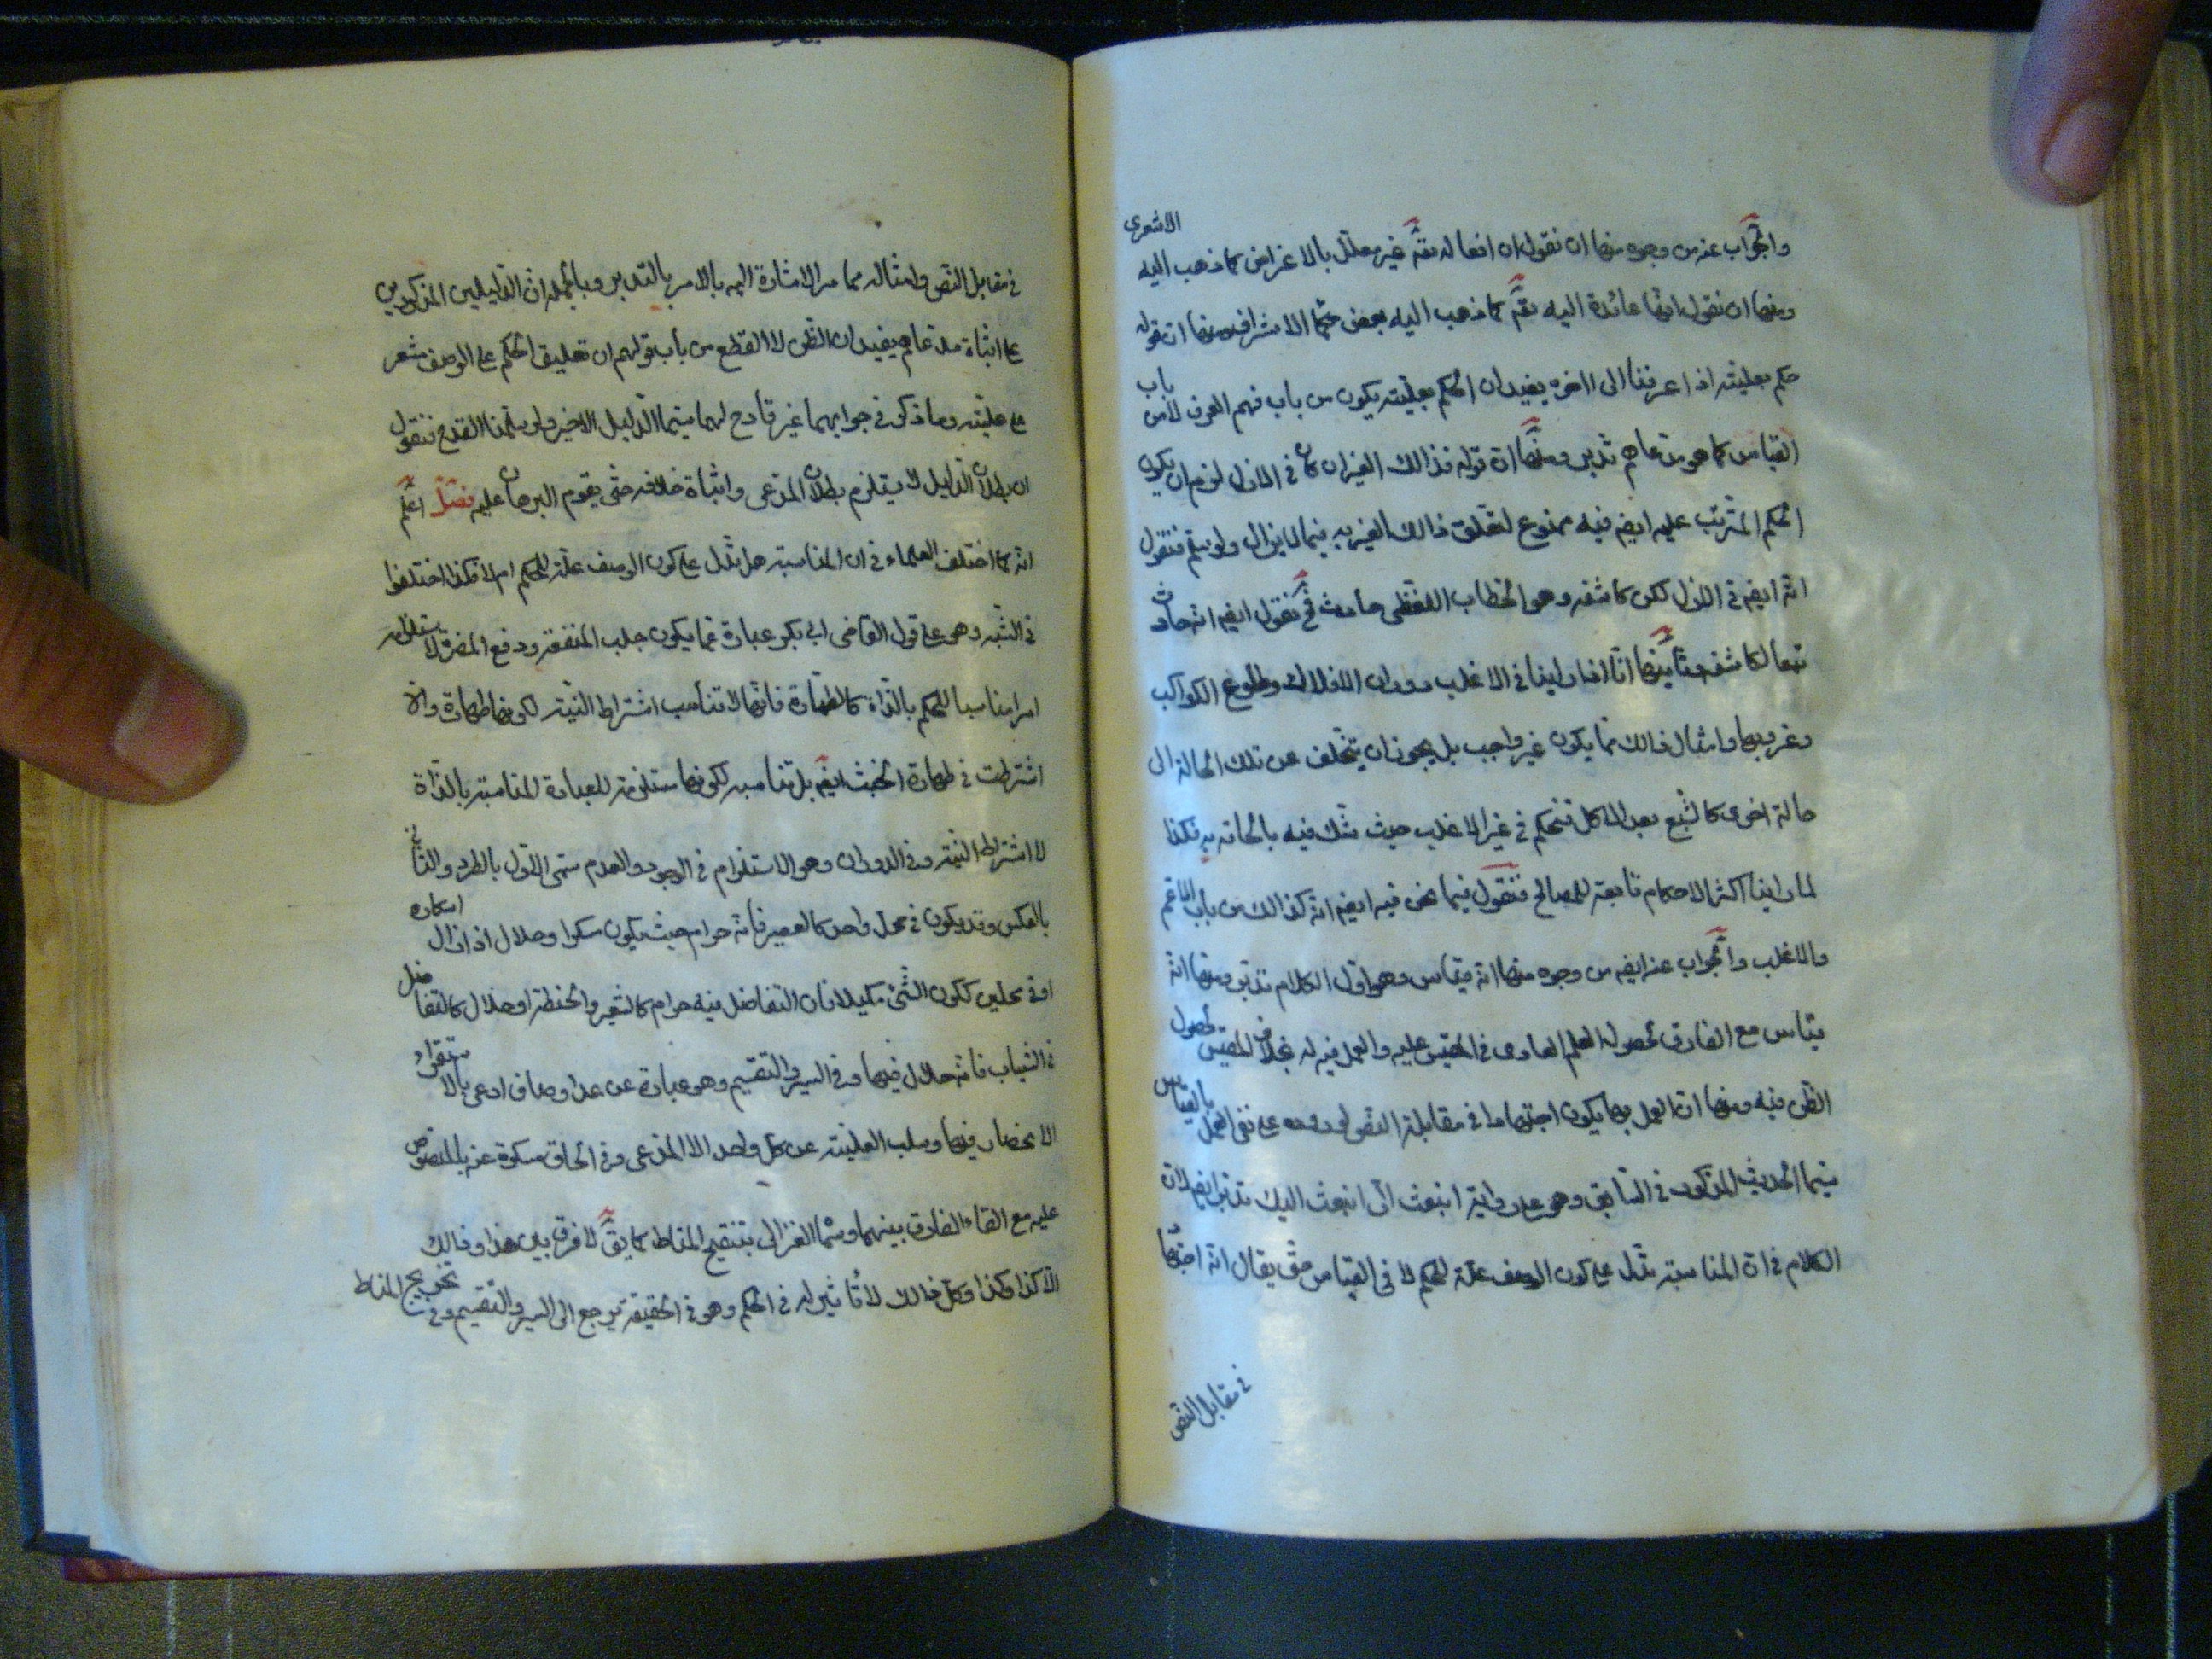 والجواب عنه من وجوه منها ان نقول ان افعاله تعّ غير معلّل بالاغراض كما ذهب اليه الاشعرى
ومنها ان نقول انّها عائدة اليه تعّ كما ذهب اليه بعض حكما الاشراف ومنها ان قوله
حكم بعليته اذا عرفنا الى اخره يفيد ان الحكم بعليته يكون من باب فهم العرف لا من باب
القياس كما هو مدعاهم تدبر ومنها ان قوله فذالك الغير ان كان في الازل لزم ان يكون
الحكم المترتب عليه ايضم فيه ممنوع لتعلق ذالك الغير به فيما لا يزال ولو سلم فنقول
انّه ايضم في الازل لكن كاشفه وهو الخطاب اللفظى حادث فح نقول ايضم انه حادث
تبعا لكاشفه وثانيها انّا اذا راينا في الاغلب دوران الافلاك وطلوع الكواكب
وغروبها وامثال ذالك مما يكون غير واجب بل يجوز ان يتخلف عن تلك الحالة الى
حالة اخرى كالشبع بعد الاكل فنحكم في غير الاغلب حيث شك فيه بالحاقه به فكذا
لما راينا اكثر الاحكام تابعة للمصالح فنقول فيما نحن فيه ايضم انه كذالك من باب الاعم
والاغلب والجواب عنه ايضم من وجوه منها انه قياس وهو اوّل الكلام تدبر ومنها انه
قياس مع الفارق لحصول العلم العادى في المقيس عليه والعمل فيه له بخلاف المقيس لحصول
الظن فيه ومنها ان العمل بها يكون اجتهادا في مقابلة النص لوروده على نفى العمل بالقياس
سيما الحديث المذكور في السابق وهو على رواية انبعث الى انبعث اليك تدبر ايضم لان
الكلام في ان المناسبة تدل على كون الوصف علّة للحكم لا في القياس حتى يقال انه اجتهاد
في مقابل النص
في مقابل النص وامثاله مما مر الاشارة اليه بالامر بالتدبر وبالجملة ان الدليلين المذكورين
على اثبات مدعاهم يفيدان الظن لا القطع من باب قولهم ان تعليق الحكم على الوصف مشعر
على علّيته وما ذكر في جوابهما غير قادح لهما سيما الدليل الاخير ولو سلمنا القدح فنقول
ان بطلان الدليل لا يستلزم بطلان المدعى واثبات خلافه حتى يقوم البرهان عليه فصل اعلم
انه كما اختلف العلماء في ان المناسبة هل تدل على كون الوصف علّة للحكم ام لا فكذا اختلفوا
في الشبه وهى على قول القاضى ابى بكر عبارة عما يكون جلب المنفعة ودفع المضرة لاستلزامه
امرا مناسبا للحكم بالذات كالطهارة فانها لا تناسب اشتراط النيّة لكونها طهارة والا
اشترطت في طهارة الخبث ايضم بل تناسبه لكونها مستلزمة للعبادة المناسبة بالذات
لاشتراط النيّة وفى الدوران وهو الاستلزام في الوجود والعدم سمّى الاوّل بالطرد والثانى
بالعكس وقد يكون في محل واحد كالعصير فانه حرام حيث يكون مسكرا وحلال اذا زال اسكاره
او في محلين ككون الشئ مكيلا فان التفاضل فيه حرام كالشعير والحنطة او حلال كالتفاضل
في الثياب فانه حلال فيها وفى السبر والتقسيم وهو عبارة عن عد اوصاف ادعى بالاستقراء
الانحصار فيها وسلب العلية عن كل واحد الا المدعى وفى الحاق مسكوت عنه بالمنصوص
عليه مع الغاء الفارق بينهما وسمّاه الغزالى بتنقيح المناط كما يقّ لا فرق بين هذا وذالك
الا كذا وكذا وكل ذالك لا تأثير له في الحكم وهو في الحقيقة يرجع الى السبر والتقسيم وفى تخريج المناط